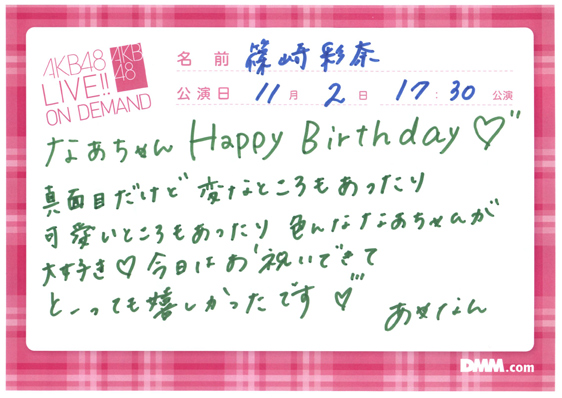 AKB48
LIVE!!
ON DEMAND
AKB
48
名前 篠崎彩奈
公演日 11月2日 17:30公演
なあちゃん Happy Birthday♡"
真面目だけど 変なところもあったり
可愛いところもあったり 色んななあちゃんが
大好き♡今日はお祝いできて
とーっても嬉しかったです♡"
あやなん
DMM.com